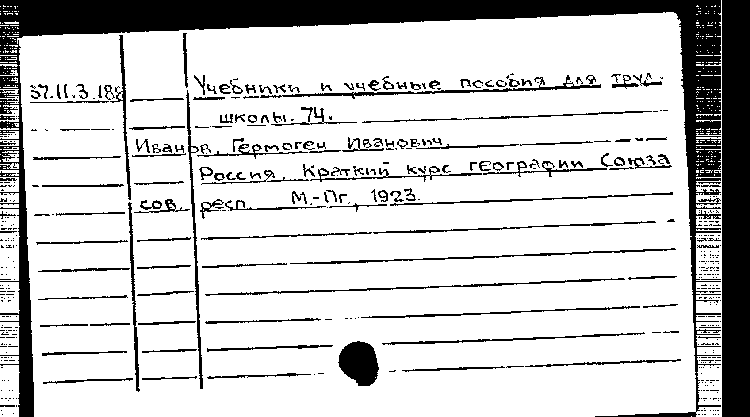 37.11.3.188 Учебники и учебные пособия для труд.
школы. 74.
Иванов, Гермоген Иванович.
Россия. Краткий курс географии Союза
сов. респ. М.-Пг., 1923.